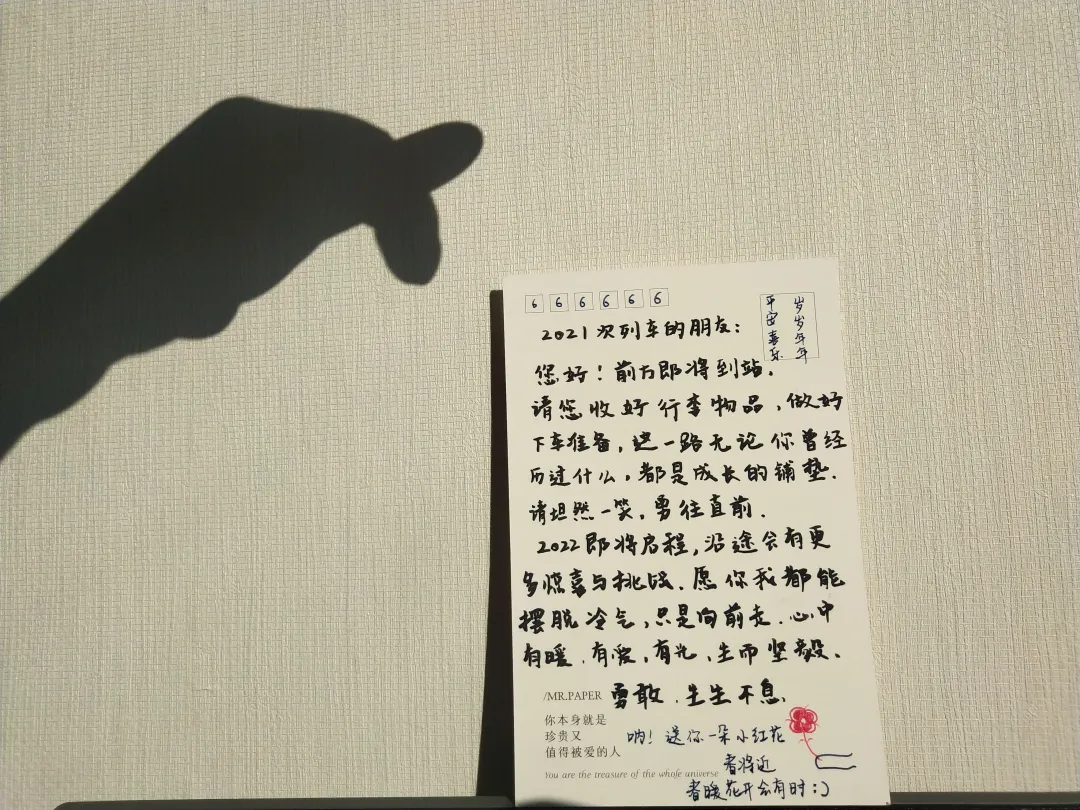 6 6 6 6 6 6
岁岁年年
平安喜乐
2021次列车的朋友：
您好！前方即将到站.
请您收好行李物品，做好
下车准备，这一路无论你曾经
历过什么，都是成长的铺垫.
请坦然一笑，勇往直前.
2022即将启程，沿途会有更
多惊喜与挑战、愿你我都能
摆脱冷气，只是向前走.心中
有暖、有爱，有光、生而坚毅、
勇敢、生生不息、
/MR.PAPER
你本身就是
珍贵又
值得被爱的人
You are the treasure of the whole universe
呐！送你一朵小红花
春将近
春暖花开会有时:)